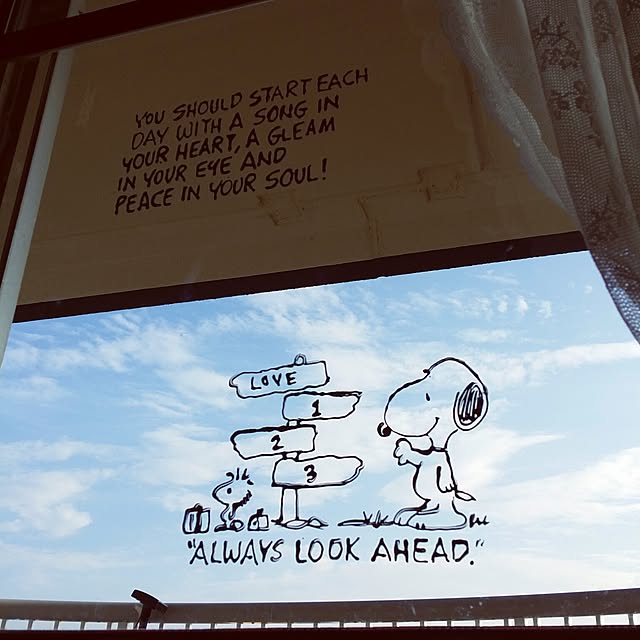 YOU SHOULD START EACH
DAY WITH A SONG IN
YOUR HEART, A GLEAM
IN YOUR EYE AND
PEACE IN YOUR SOUL!
LOVE
1
2
3
"ALWAYS LOOK AHEAD."